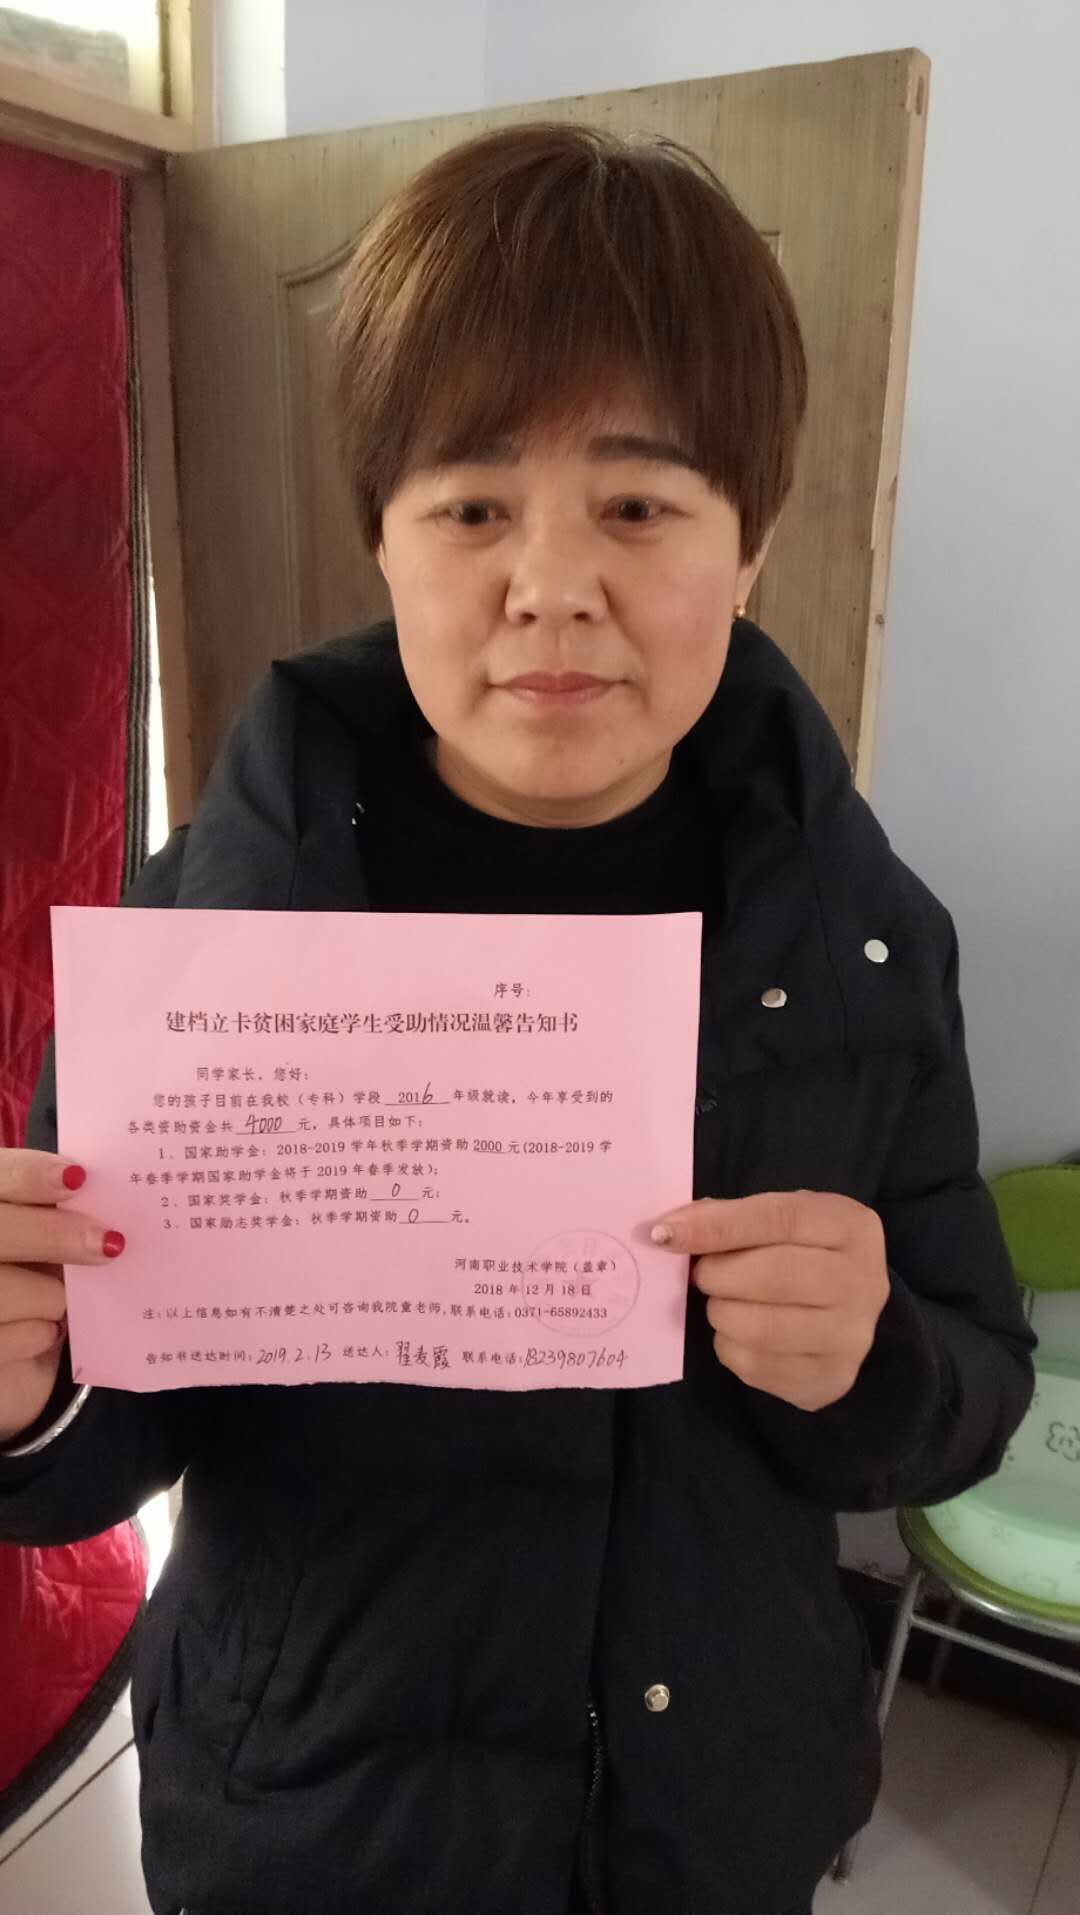 序号:
建档立卡贫困家庭学生受助情况温馨告知书
同学家长,您好:
您的孩子目前在我校(专科)学段 2016 年级就读,今年享受到的
各类资助资金共 4000 元,具体项目如下:
1、国家助学金:2018-2019 学年秋季学期资助 2000 元(2018-2019 学
年春季学期国家助学金将于 2019 年春季发放);
2、国家奖学金:秋季学期资助 0 元;
3、国家励志奖学金:秋季学期资助 0 元。
河南职业技术学院(盖章)
2018 年 12 月 18 日
注:以上信息如有不清楚之处可咨询我院童老师,联系电话:0371-65892433
告知书送达时间:2019.2.13 送达人:翟麦霞 联系电话:18239807604